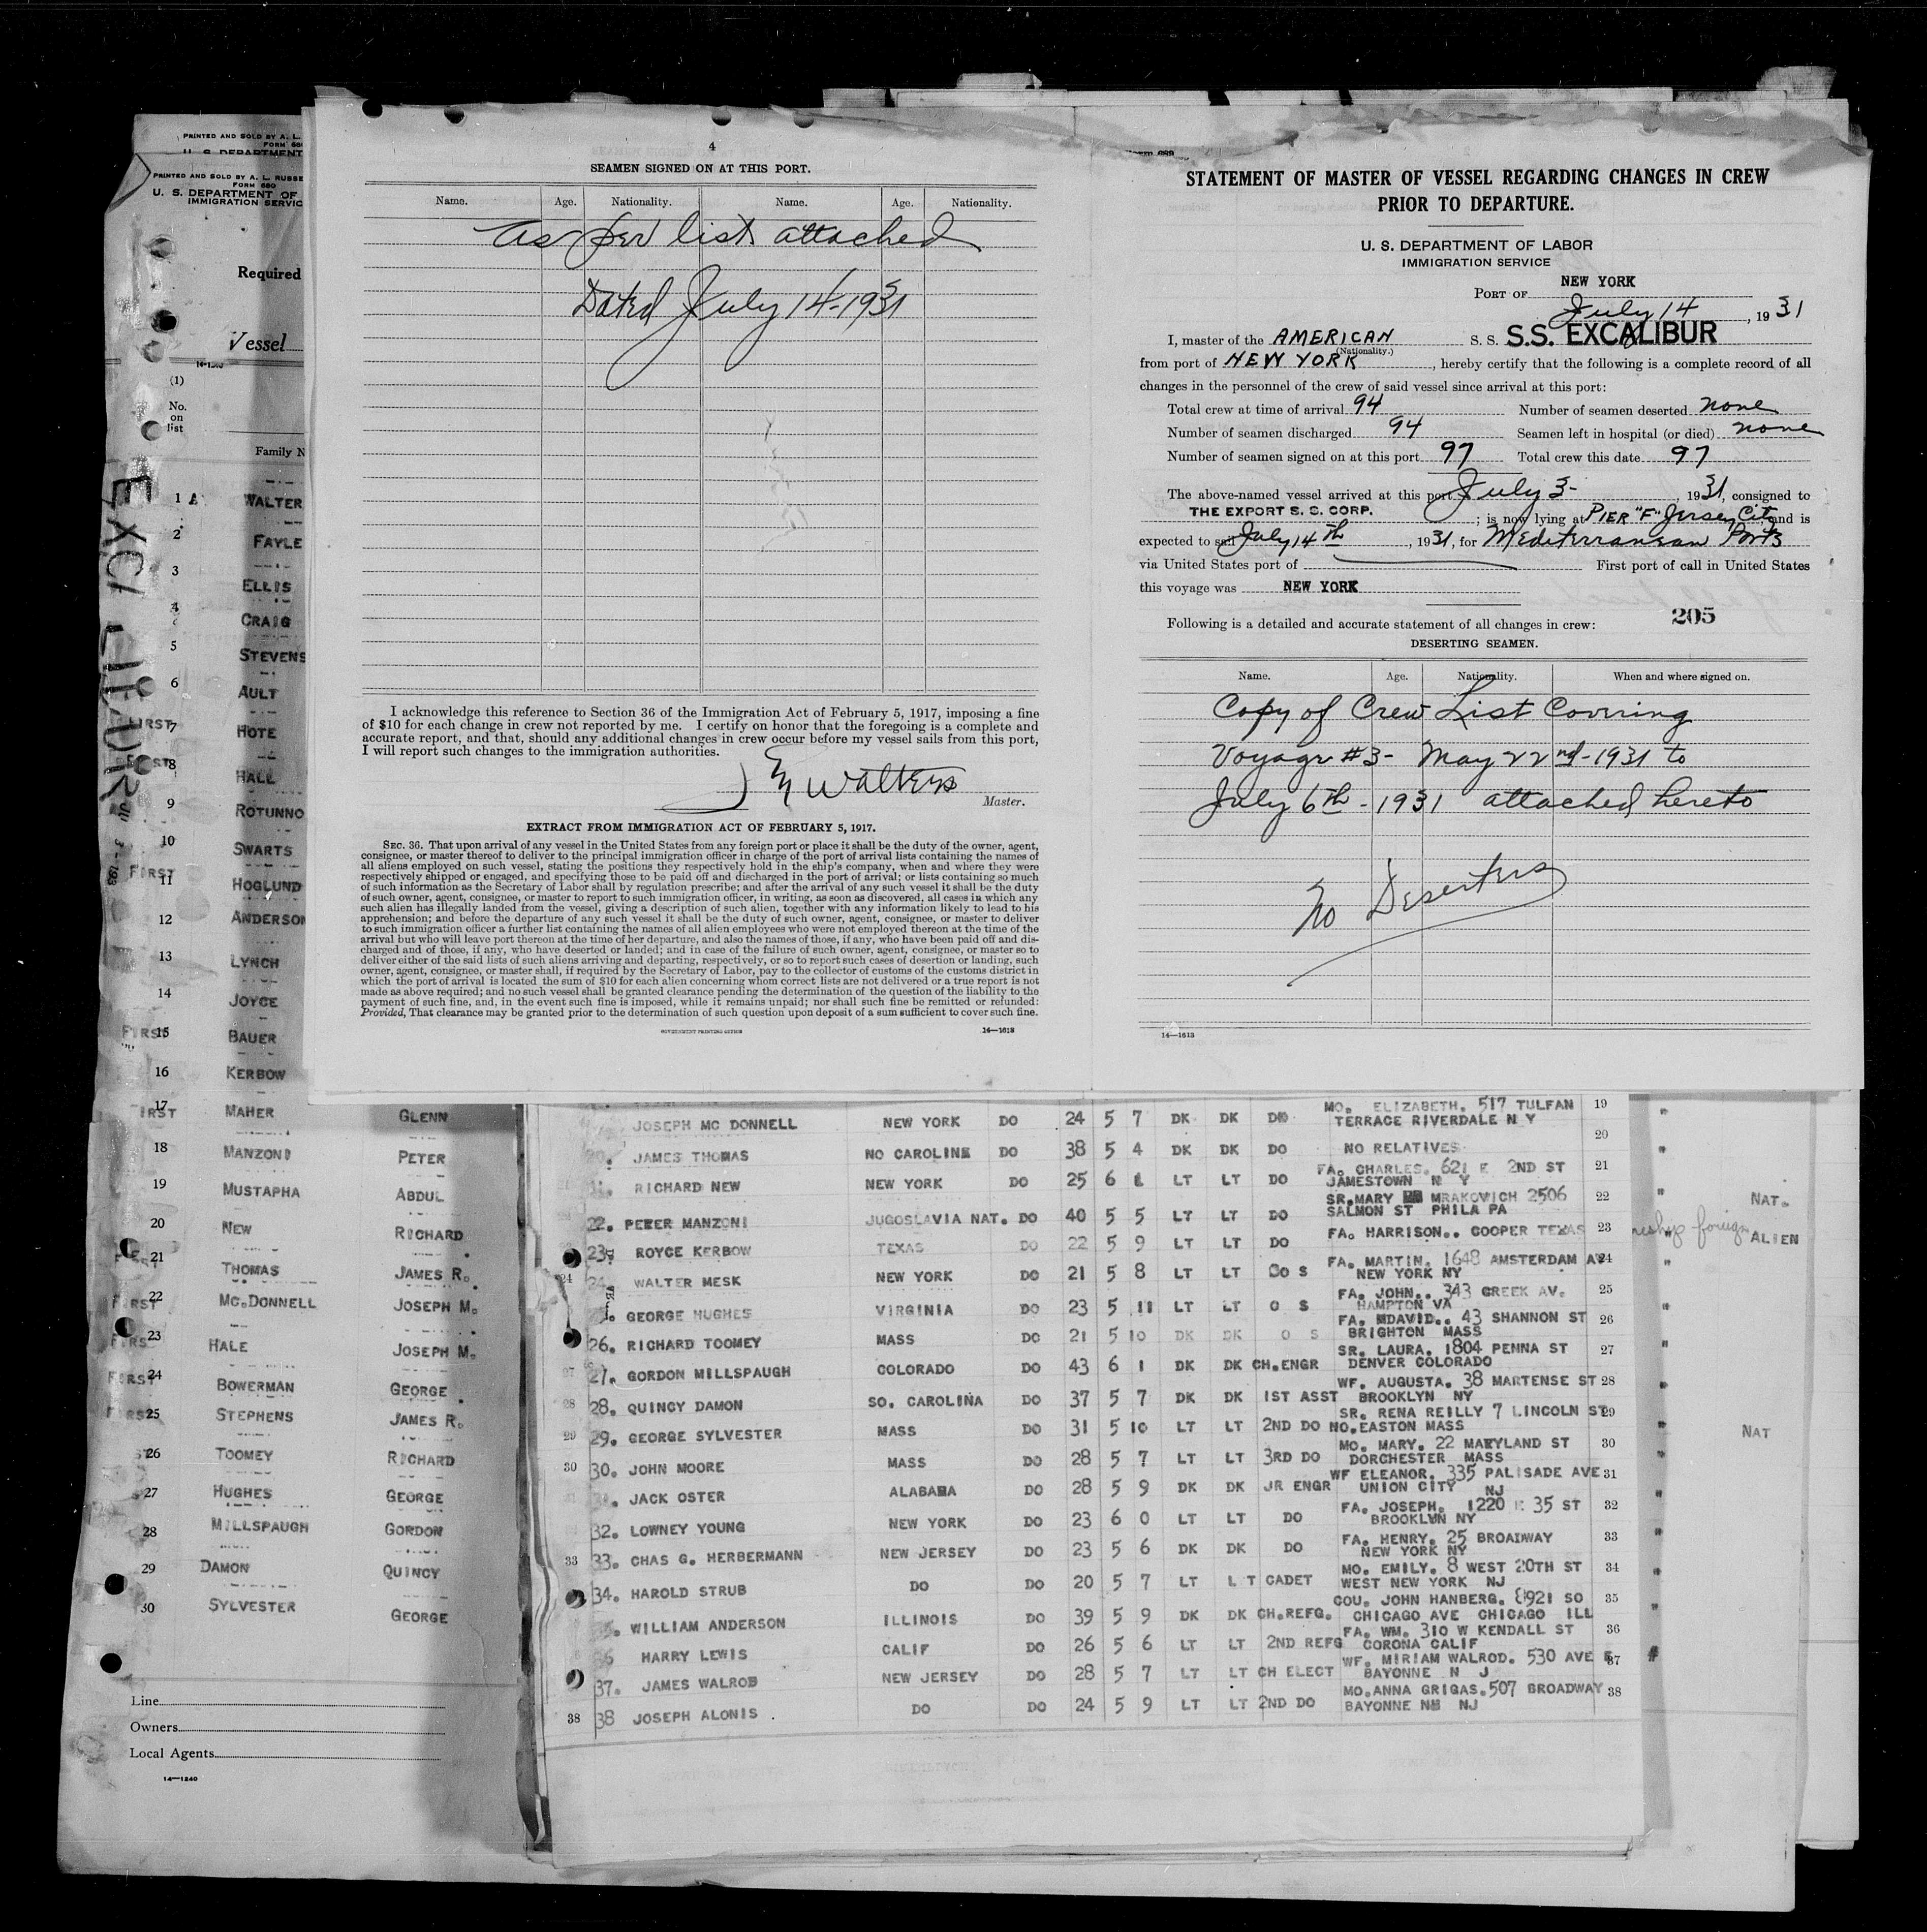 4
SEAMEN SIGNED ON AT THIS PORT.
Name. Age. Nationality. Name. Age. Nationality.
As per list attached
Dated July 14-1931
I acknowledge this reference to Section 36 of the Immigration Act of February 5, 1917, imposing a fine
of $10 for each change in crew not reported by me. I certify on honor that the foregoing is a complete and
accurate report, and that, should any additional changes in crew occur before my vessel sails from this port,
I will report such changes to the immigration authorities.
Walters
Master.
EXTRACT FROM IMMIGRATION ACT OF FEBRUARY 5, 1917.
SEC. 36. That upon arrival of any vessel in the United States from any foreign port or place it shall be the duty of the owner, agent,
consignee, or master thereof to deliver to the principal immigration officer in charge of the port of arrival lists containing the names of
all aliens employed on such vessel, stating the positions they respectively hold in the ship's company, when and where they were
respectively shipped or engaged, and specifying those to be paid off and discharged in the port of arrival; or lists containing so much
of such information as the Secretary of Labor shall by regulation prescribe; and after the arrival of any such vessel it shall be the duty
of such owner, agent, consignee, or master to report to such immigration officer, in writing, as soon as discovered, all cases in which any
such alien has illegally landed from the vessel, giving a description of such alien, together with any information likely to lead to his
apprehension; and before the departure of any such vessel it shall be the duty of such owner, agent, consignee, or master to deliver
to such immigration officer a further list containing the names of all alien employees who were not employed thereon at the time of the
arrival but who will leave port thereon at the time of her departure, and also the names of those, if any, who have been paid off and dis-
charged and of those, if any, who have deserted or landed; and in case of the failure of such owner, agent, consignee, or master so to
deliver either of the said lists of such aliens arriving and departing, respectively, or so to report such cases of desertion or landing, such
owner, agent, consignee, or master shall, if required by the Secretary of Labor, pay to the collector of customs of the customs district in
which the port of arrival is located the sum of $10 for each alien concerning whom correct lists are not delivered or a true report is not
made as above required; and no such vessel shall be granted clearance pending the determination of the question of the liability to the
payment of such fine, and, in the event such fine is imposed, while it remains unpaid; nor shall such fine be remitted or refunded:
Provided, That clearance may be granted prior to the determination of such question upon deposit of a sum sufficient to cover such fine.
GOVERNMENT PRINTING OFFICE 14—1613
STATEMENT OF MASTER OF VESSEL REGARDING CHANGES IN CREW
PRIOR TO DEPARTURE.
U. S. DEPARTMENT OF LABOR
IMMIGRATION SERVICE
PORT OF NEW YORK
July 14, 1931
I, master of the AMERICAN S. S. S.S. EXCALIBUR
(Nationality.)
from port of NEW YORK, hereby certify that the following is a complete record of all
changes in the personnel of the crew of said vessel since arrival at this port:
Total crew at time of arrival 94 Number of seamen deserted none
Number of seamen discharged 94 Seamen left in hospital (or died) none
Number of seamen signed on at this port 97 Total crew this date 97
The above-named vessel arrived at this port July 3-, 1931, consigned to
THE EXPORT S. S. CORP.; is now lying at PIER "F" Jersey City and is
expected to sail July 14th, 1931, for Mediterranean Ports
via United States port of First port of call in United States
this voyage was NEW YORK
205
Following is a detailed and accurate statement of all changes in crew:
DESERTING SEAMEN.
Name. Age. Nationality. When and where signed on.
Copy of Crew List Covering
Voyage #3- May 22nd-1931 to
July 6th-1931 attached hereto
No Deserters
14—1613
PRINTED AND SOLD BY A. L.
FORM 680
U. S. DEPARTMENT
PRINTED AND SOLD BY A. L. RUSSE
FORM 680
U. S. DEPARTMENT OF
IMMIGRATION SERVIC
Required
Vessel
14-1240
(1)
No.
on
list
Family N
EXCALIBUR
1 A WALTER
2 FAYLE
3 ELLIS
4 CRAIG
5 STEVENS
6 AULT
FIRST 7 HOTE
8 HALL
9 ROTUNNO
10 SWARTS
FIRST 11 HOGLUND
12 ANDERSON
13 LYNCH
14 JOYCE
FIRST 15 BAUER
16 KERBOW
17 MAHER GLENN
18 MANZONI PETER
19 MUSTAPHA ABDUL
20 NEW RICHARD
21 THOMAS JAMES R.
FIRST 22 MC.DONNELL JOSEPH M.
23 HALE JOSEPH M.
FIRST 24 BOWERMAN GEORGE
FIRST 25 STEPHENS JAMES R.
26 TOOMEY RICHARD
27 HUGHES GEORGE
28 MILLSPAUGH GORDON
29 DAMON QUINCY
30 SYLVESTER GEORGE
Line
Owners
Local Agents
14—1240
JOSEPH MC DONNELL NEW YORK DO 24 5 7 DK DK DO MO. ELIZABETH. 517 TULFAN TERRACE RIVERDALE N Y 19
20. JAMES THOMAS NO CAROLINE DO 38 5 4 DK DK DO NO RELATIVES 20
RICHARD NEW NEW YORK DO 25 6 1 LT LT DO FA. CHARLES. 621 E 2ND ST JAMESTOWN N Y 21
22. PETER MANZONI JUGOSLAVIA NAT. DO 40 5 5 LT LT DO SR.MARY MRAKOVICH 2506 SALMON ST PHILA PA 22 NAT.
23. ROYCE KERBOW TEXAS DO 22 5 9 LT LT DO FA. HARRISON.. COOPER TEXAS 23 foreign ALIEN
24. WALTER MESK NEW YORK DO 21 5 8 LT LT DO S FA. MARTIN. 1648 AMSTERDAM AV NEW YORK NY 24
GEORGE HUGHES VIRGINIA DO 23 5 11 LT LT O S FA. JOHN.. 343 CREEK AV. HAMPTON VA 25
26. RICHARD TOOMEY MASS DO 21 5 10 DK DK O S FA. MDAVID.. 43 SHANNON ST BRIGHTON MASS 26
27 27. GORDON MILLSPAUGH COLORADO DO 43 6 1 DK DK CH.ENGR SR. LAURA. 1804 PENNA ST DENVER COLORADO 27
28 28. QUINCY DAMON SO. CAROLINA DO 37 5 7 DK DK 1ST ASST WF. AUGUSTA. 38 MARTENSE ST BROOKLYN NY 28
29 29. GEORGE SYLVESTER MASS DO 31 5 10 LT LT 2ND DO SR. RENA REILLY 7 LINCOLN ST NO.EASTON MASS 29 NAT
30 30. JOHN MOORE MASS DO 28 5 7 LT LT 3RD DO MO. MARY. 22 MARYLAND ST DORCHESTER MASS 30
JACK OSTER ALABAMA DO 28 5 9 DK DK JR ENGR WF ELEANOR. 335 PALISADE AVE UNION CITY NJ 31
32. LOWNEY YOUNG NEW YORK DO 23 6 0 LT LT DO FA. JOSEPH. 1220 E 35 ST BROOKLYN NY 32
33 33. CHAS G. HERBERMANN NEW JERSEY DO 23 5 6 DK DK DO FA. HENRY. 25 BROADWAY NEW YORK NY 33
34. HAROLD STRUB DO DO 20 5 7 LT L T CADET MO. EMILY. 8 WEST 20TH ST WEST NEW YORK NJ 34
WILLIAM ANDERSON ILLINOIS DO 39 5 9 DK DK CH.REFG. COU. JOHN HANBERG. 8921 SO CHICAGO AVE CHICAGO ILL 35
36 HARRY LEWIS CALIF DO 26 5 6 LT LT 2ND REFG FA. WM. 310 W KENDALL ST CORONA CALIF 36
37. JAMES WALROD NEW JERSEY DO 28 5 7 LT LT CH ELECT WF. MIRIAM WALROD. 530 AVE E BAYONNE N J 37
38 38 JOSEPH ALONIS DO DO 24 5 9 LT LT 2ND DO MO.ANNA GRIGAS.507 BROADWAY BAYONNE NJ 38